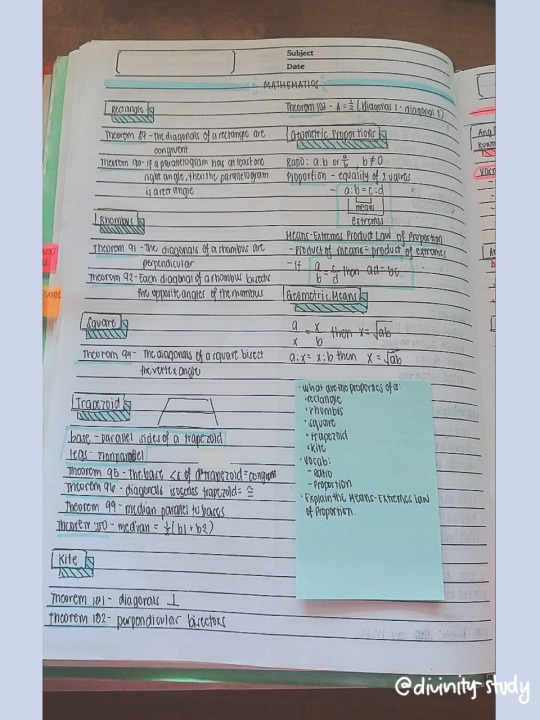 Subject
Date
MATHEMATICS
Rectangle
Theorem 89 - The diagonals of a rectangle are
congruent
Theorem 90 - If a parallelogram has at least one
right angle, then the parallelogram
is a rectangle
Rhombus
Theorem 91 - The diagonals of a rhombus are
perpendicular
Theorem 92 - Each diagonal of a rhombus bisects
the opposite angles of the rhombus
Square
Theorem 94 - The diagonals of a square bisect
the vertex angle
Trapezoid
base - parallel sides of a trapezoid
legs - nonparallel
Theorem 95 - the base <s of trapezoid = congruent
Theorem 96 - diagonals isosceles trapezoid = ≅
Theorem 99 - median parallel to bases
Theorem 100 - median = ½(b1 + b2)
Kite
Theorem 101 - diagonals ⊥
Theorem 102 - perpendicular bisectors
Theorem 103 - A = ½ (diagonal 1 · diagonal 2)
Geometric Proportions
Ratio: a:b or a/b, b≠0
Proportion - equality of 2 ratios
- a:b = c:d
means
extremes
Means-Extremes Product Law of Proportion
- Product of means = product of extremes
- If a/b = c/d then ad = bc
Geometric Means
a/x = x/b then x = √ab
a:x = x:b then x = √ab
· What are the properties of a:
· rectangle
· rhombus
· square
· trapezoid
· kite
· Vocab:
- Ratio
- Proportion
· Explain the Means-Extremes Law
of Proportion
@divinity-study